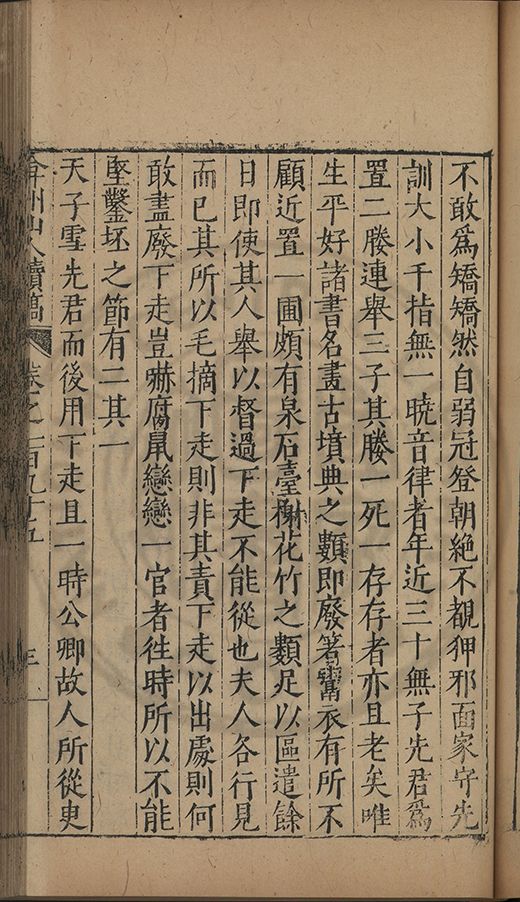 不敢為矯矯然自弱冠登朝絶不覩狎邪面家守先
訓大小千指無一曉音律者年近三十無子先君為
置二媵連舉三子其媵一死一存存者亦且老矣唯
生平好諸書名畫古墳典之類即廢箸鬻衣有所不
顧近置一圃頗有泉石臺榭花竹之類足以區遣餘
日即使其人舉以督過下走不能從也夫人各行見
而已其所以毛摘下走則非其責下走以出處則何
敢盡廢下走豈嚇腐鼠戀戀一官者徃時所以不能
堅鑿坯之節有二其一
天子雪先君而後用下走且一時公卿故人所從臾
弇州山人續稿 卷之一百九十五 三